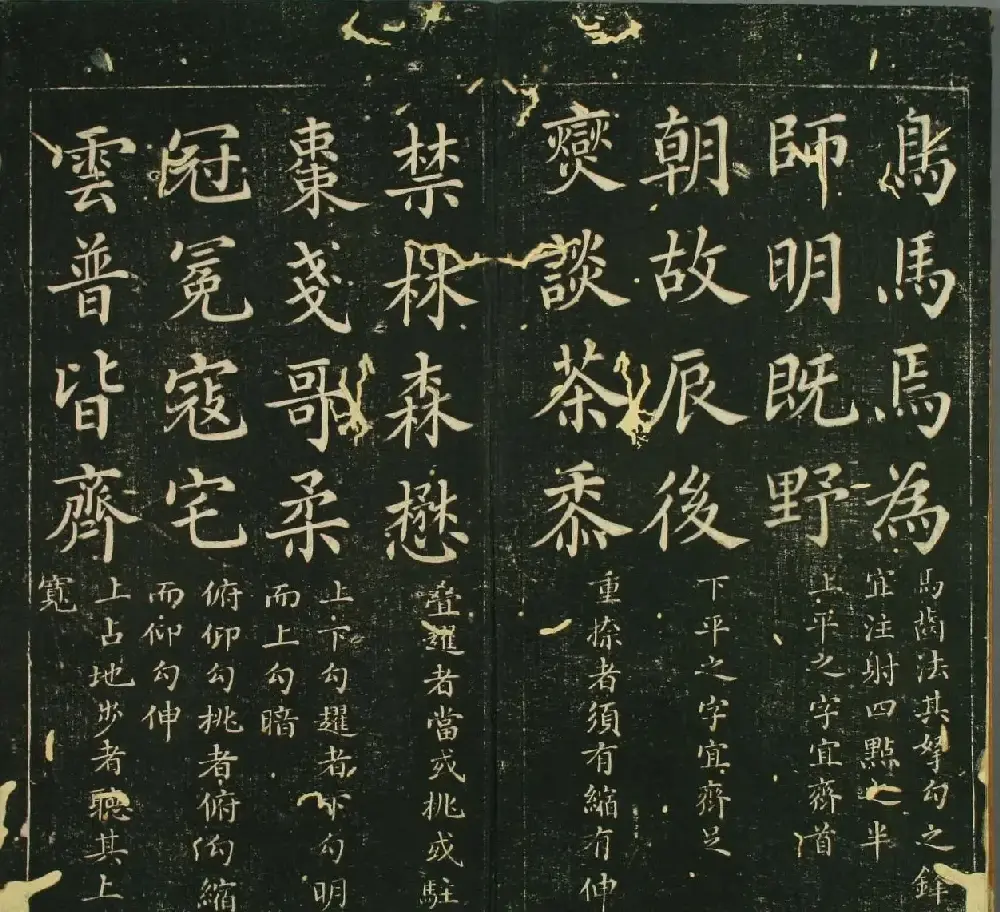 鳥馬焉為
馬齒法其努勾之鋒
宜注射四點之半
師明既野
上平之字宜齊首
朝故辰後
下平之字宜齊足
爕談茶黍
重捺者須有縮有伸
禁森懋
疊趯者當或挑或駐
棗戔哥柔
上下勾趯者下勾明
而上勾暗
冠冕寇宅
俯仰勾挑者俯勾縮
而仰勾伸
雲普皆齊
上占地步者聽其上
寬